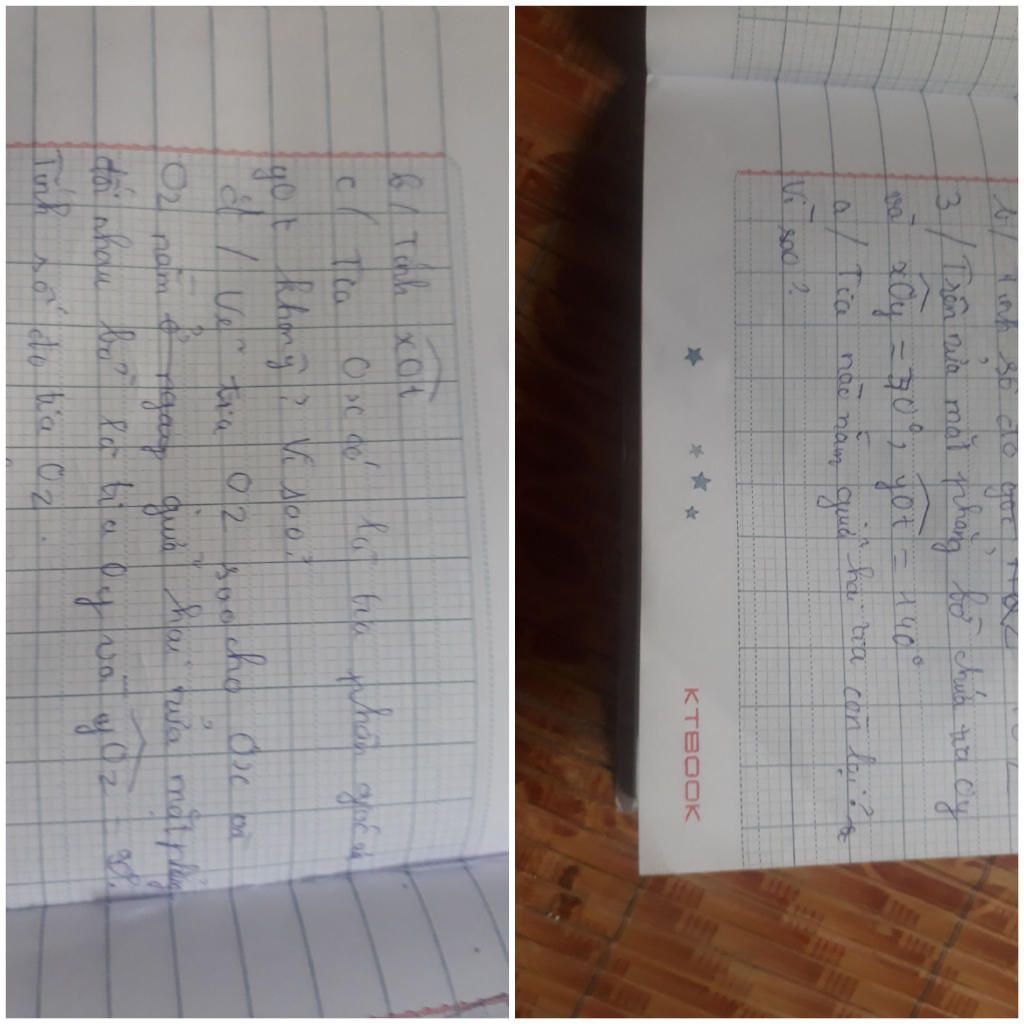 b/ Tính số đo góc
3/ Trên nửa mặt phẳng bờ chứa tia Oy
và xOy = 70°, yOt = 140°
a/ Tia nào nằm giữa hai tia còn lại?
Vì sao?
KTBOOK
b/ Tính xOt
c/ Tia Ox có là tia phân giác
yOt không? Vì sao?
d/ Vẽ tia Oz sao cho Ox và
Oz nằm ở hai nửa mặt phẳng
đối nhau bờ là tia Oy và yOz =
Tính số đo tia Oz.